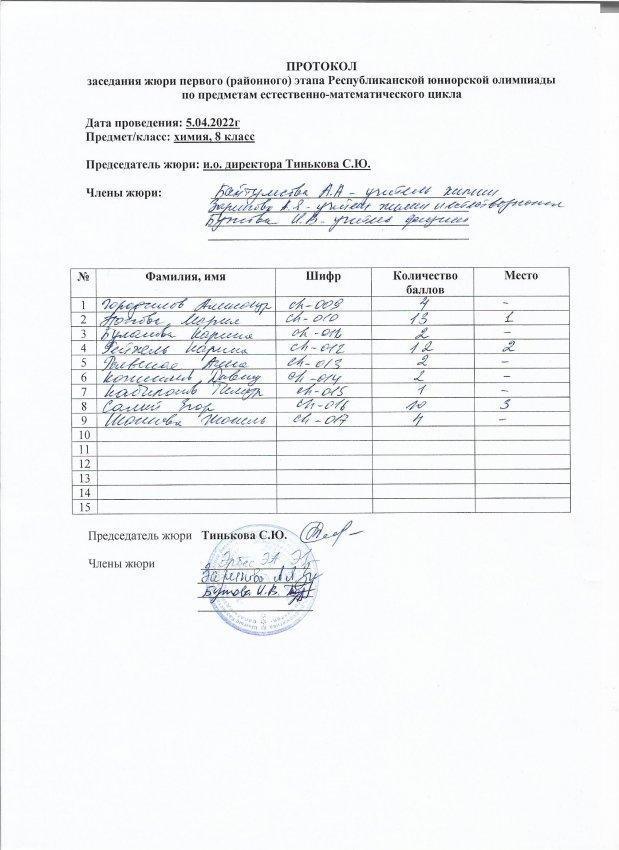 ПРОТОКОЛ
заседания жюри первого (районного) этапа Республиканской юниорской олимпиады
по предметам естественно-математического цикла
Дата проведения: 5.04.2022г
Предмет/класс: химия, 8 класс
Председатель жюри: и.о. директора Тинькова С.Ю.
Члены жюри: А.А - учитель химии
А.Я - учитель химии и естествознания
Бутова И.В - учитель физики
№ Фамилия, имя Шифр Количество баллов Место
1 Александр ch-009 4 -
2 Мария ch-010 13 1
3 Буланова Карина ch-011 2 -
4 Карина ch-012 12 2
5 Анна ch-013 2 -
6 Давид ch-014 2 -
7 Тимур ch-015 1 -
8 Салий Егор ch-016 10 3
9 ch-017 4 -
10
11
12
13
14
15
Председатель жюри Тинькова С.Ю.
Члены жюри Эрбес ЭА
А.Я
Бутова И.В.